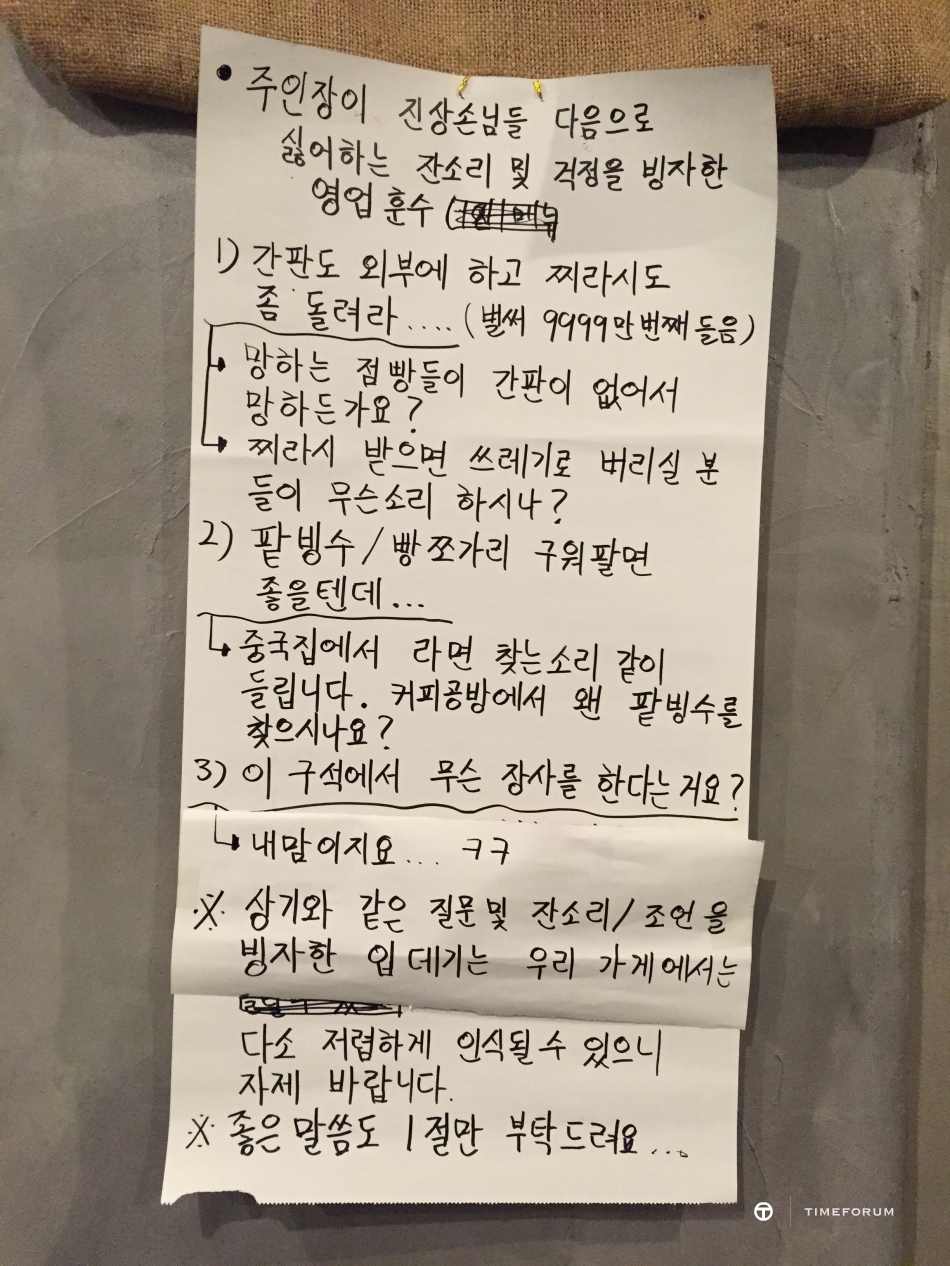 ● 주인장이 진상손님들 다음으로
싫어하는 잔소리 및 걱정을 빙자한
영업 훈수
1) 간판도 외부에 하고 찌라시도
좀 돌려라.... (벌써 9999만번째 들음)
망하는 점빵들이 간판이 없어서
망하든가요?
찌라시 받으면 쓰레기로 버리실 분
들이 무슨소리 하시나?
2) 팥빙수/빵쪼가리 구워팔면
좋을텐데...
중국집에서 라면 찾는소리 같이
들립니다. 커피공방에서 왠 팥빙수를
찾으시나요?
3) 이 구석에서 무슨 장사를 한다는거요?
내맘이지요... ㅋㅋ
※ 상기와 같은 질문및 잔소리/조언을
빙자한 입데기는 우리 가게에서는
다소 저렴하게 인식될수 있으니
자제 바랍니다.
※ 좋은말씀도 1절만 부탁드려요...
TIMEFORUM